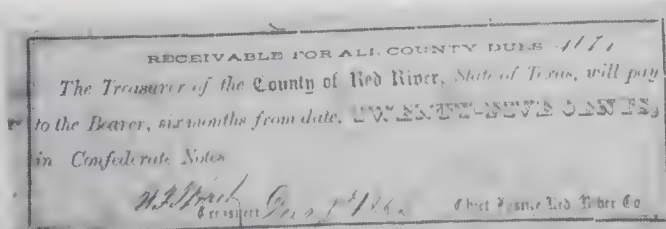 RECEIVABLE FOR ALL COUNTY DUES
The Treasurer of the County of Red River, State of Texas, will pay
to the Bearer, six months from date, TWENTY-FIVE CENTS,
in Confederate Notes
Treasurer Chief Justice Red River Co